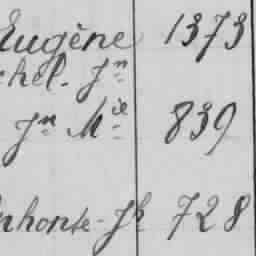 Eugène 1373
chel. Jn
Jn Mie 839
phonse-Jh 728